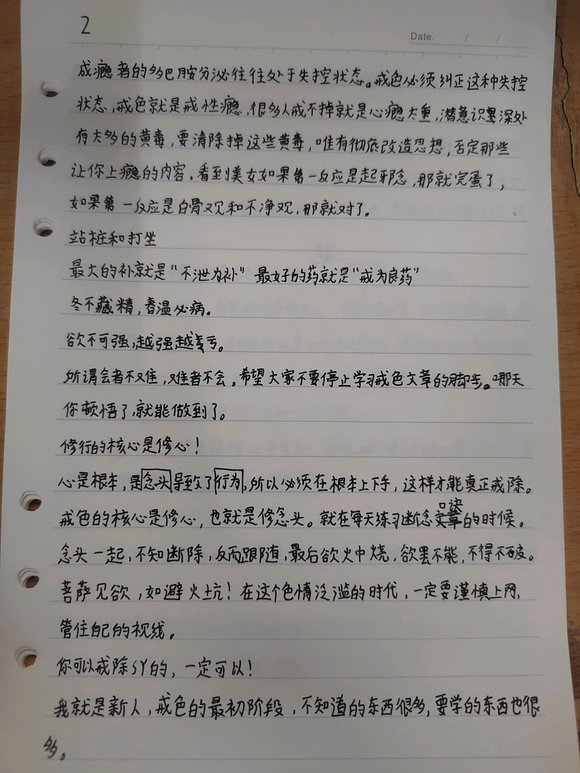 2
Date. / /
成瘾者的多巴胺分泌往往处于失控状态。戒色必须纠正这种失控
状态,戒色就是戒性瘾,很多人戒不掉就是心瘾太重,潜意识里深处
有太多的黄毒,要清除掉这些黄毒,唯有彻底改造思想,否定那些
让你上瘾的内容,看到美女如果第一反应是起邪念,那就完蛋了,
如果第一反应是白骨观和不净观,那就对了。
站桩和打坐
最大的补就是“不泄为补” 最好的药就是“戒为良药”
冬不藏精,春温必病。
欲不可强,越强越亏。
所谓会者不难,难者不会。希望大家不要停止学习戒色文章的脚步。哪天
你顿悟了,就能做到了。
修行的核心是修心!
心是根本,是念头导致了行为,所以必须在根本上下手,这样才能真正戒除。
戒色的核心是修心,也就是修念头。就在每天练习断念口诀的时候。
念头一起,不知断除,反而跟随,最后欲火中烧,欲罢不能,不得不破。
菩萨见欲,如避火坑!在这个色情泛滥的时代,一定要谨慎上网,
管住自己的视线。
你可以戒除SY的,一定可以!
我就是新人,戒色的最初阶段,不知道的东西很多,要学的东西也很
多。